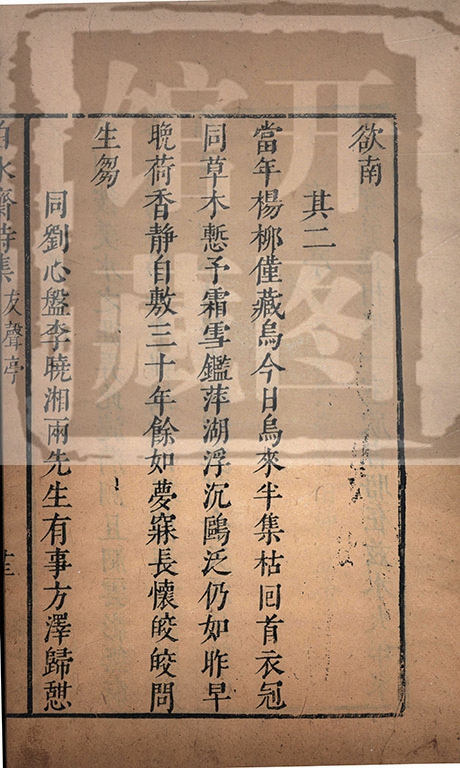 欲南
其二
當年楊柳僅藏烏今日烏來半集枯回首衣冠
同草木慙予霜雪鑑萍湖浮沉鷗泛仍如昨早
晚荷香静自敷三十年餘如夢寐長懷皎皎問
生芻
同劉心盤李曉湘兩先生有事方澤歸憇
白水齋詩集 友聲亭
开图馆藏